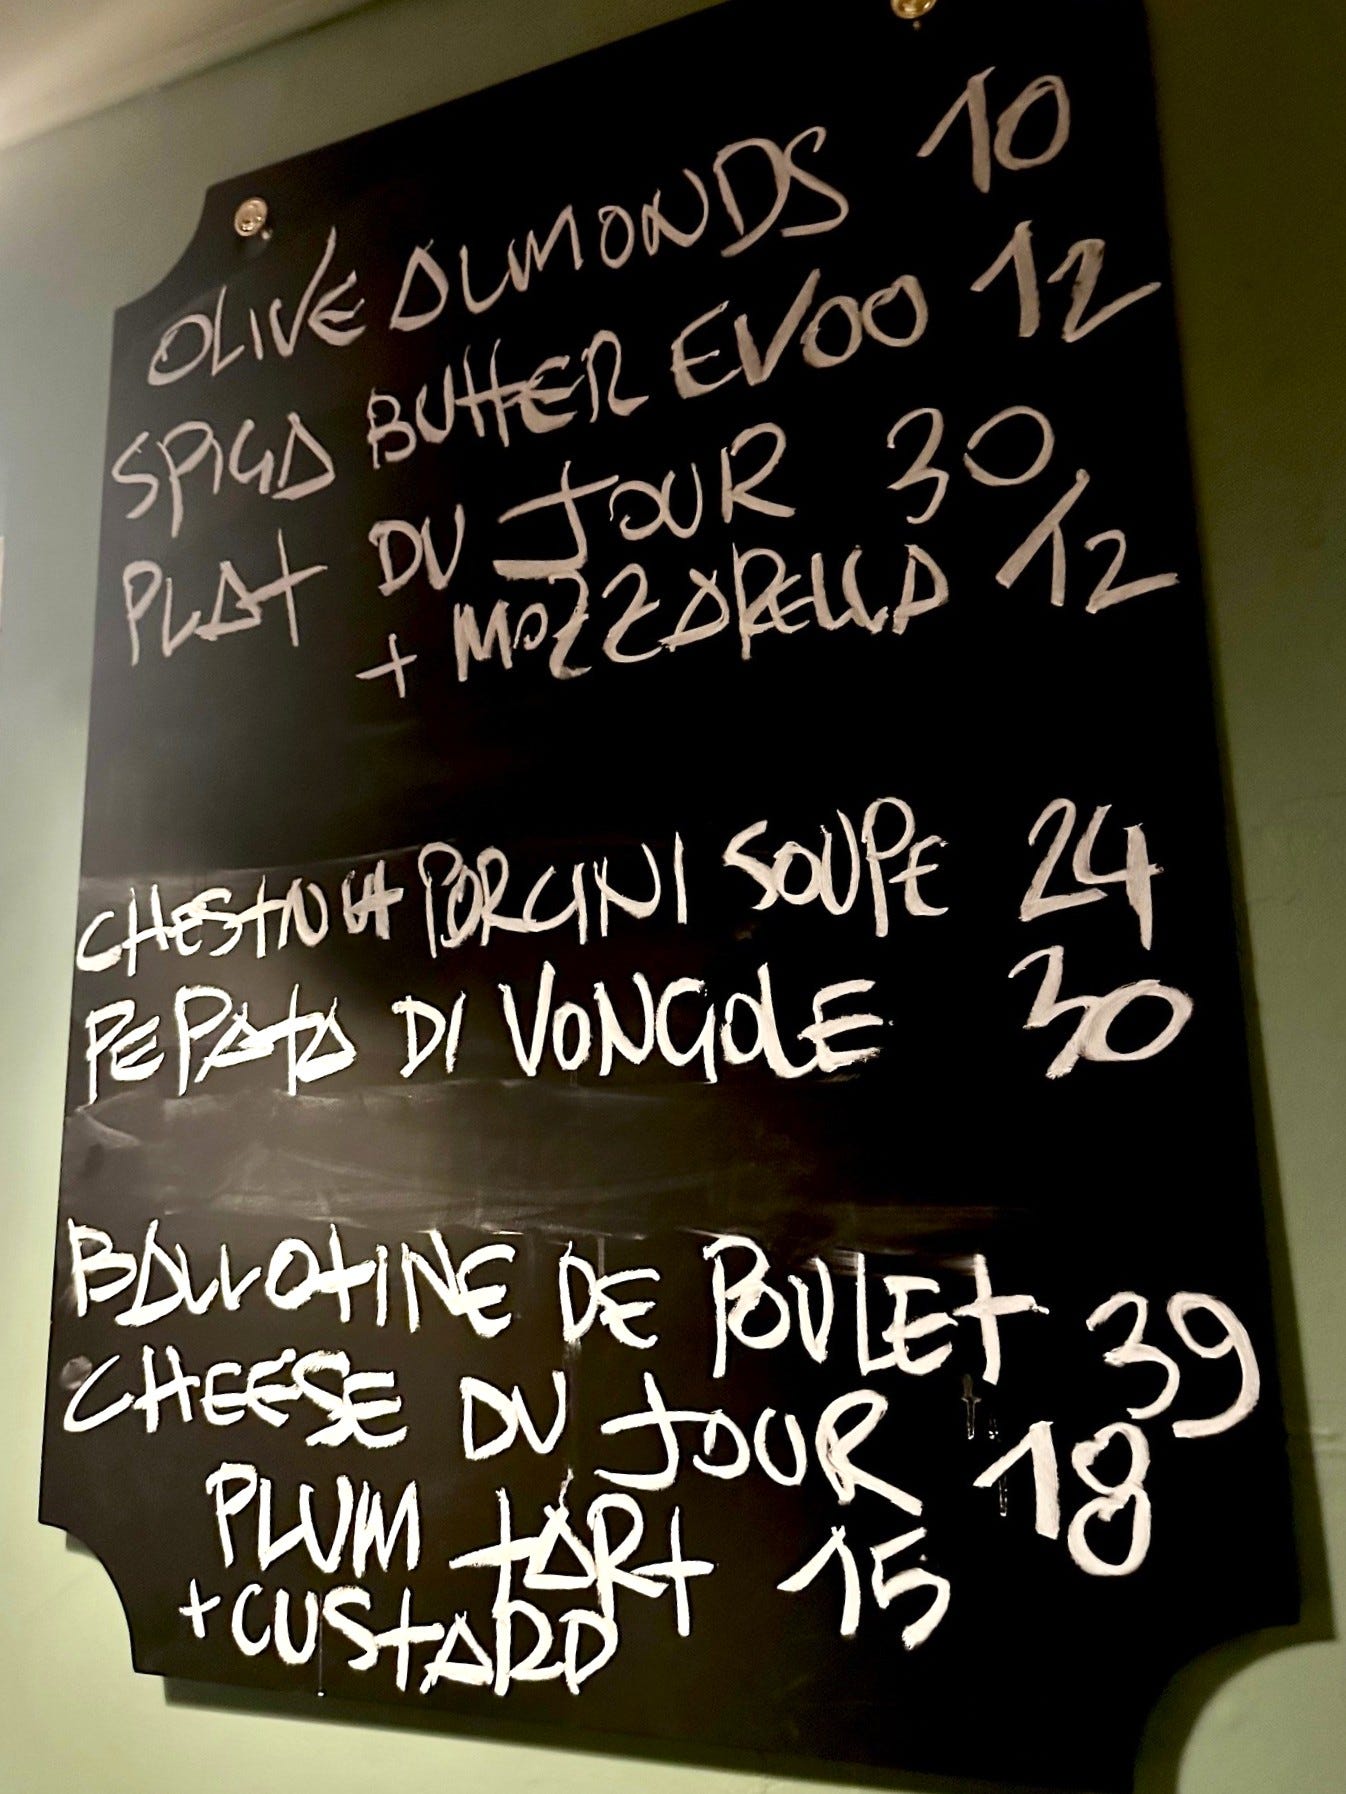 OLIVE ALMONDS 10
SPIGA BUTTER EVOO 12
PLAT DU JOUR 30
+ MOZZARELLA 12
CHESTNUT PORCINI SOUPE 24
PEPATA DI VONGOLE 30
BALLOTINE DE POULET 39
CHEESE DU JOUR 18
PLUM TART 15
+CUSTARD